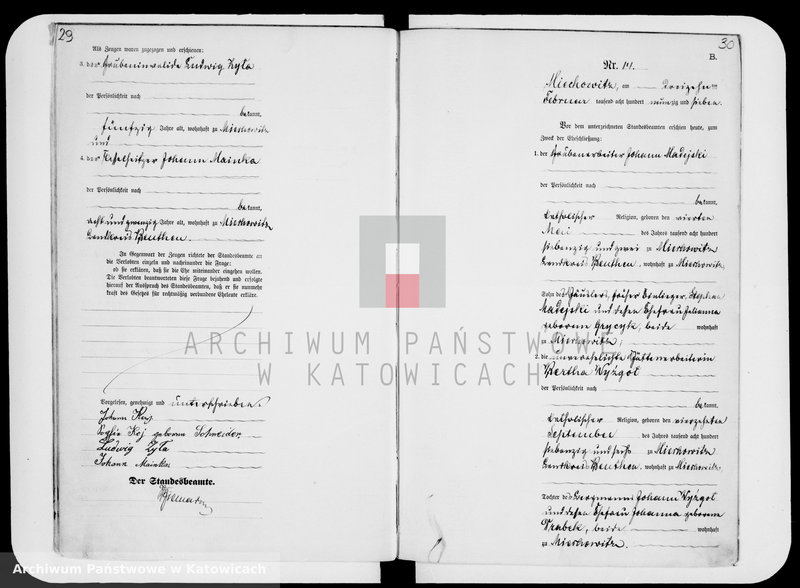 29
Als Zeugen waren zugezogen und erschienen:
3. der Grubeninvalide Ludwig Zyla
der Persönlichkeit nach
be kannt,
fünfzig Jahre alt, wohnhaft zu Miechowitz
und
4. der Johann Mainka
der Persönlichkeit nach
be kannt,
acht und zwanzig Jahre alt, wohnhaft zu Miechowitz
Landkreis Beuthen.
In Gegenwart der Zeugen richtete der Standesbeamte an
die Verlobten einzeln und nacheinander die Frage:
ob sie erklären, daß sie die Ehe miteinander eingehen wollen.
Die Verlobten beantworteten diese Frage bejahend und erfolgte
hierauf der Ausspruch des Standesbeamten, daß er sie nunmehr
kraft des Gesetzes für rechtmäßig verbundene Eheleute erkläre.
Vorgelesen, genehmigt und unterschrieben.
Johann Koj
Sophie Koj geborene Schneider
Ludwig Zyla
Johann Mainka
Der Standesbeamte.
30
B.
Nr. 14.
Miechowitz, am dreizehn ten
Februar tausend acht hundert neun zig und sieben.
Vor dem unterzeichneten Standesbeamten erschien heute, zum
Zweck der Eheschließung:
1. der Grubenarbeiter Johann Madejski
der Persönlichkeit nach
be kannt,
katholischer Religion, geboren den vierten
Mai des Jahres tausend acht hundert
siebenzig und zwei zu Miechowitz
Landkreis Beuthen, wohnhaft zu Miechowitz
Sohn des Häuslers, früher Einlieger, Stephan
Madejski und dessen Ehefrau Julianna
geborenen Grzycyk, beide wohnhaft
zu Miechowitz;
2. die unverehelichte Hüttenarbeiterin
Bertha Wyzgol
der Persönlichkeit nach
be kannt,
katholischer Religion, geboren den vierzehnten
September des Jahres tausend acht hundert
siebenzig und sechs zu Miechowitz
Landkreis Beuthen, wohnhaft zu Miechowitz,
Tochter des Bergmanns Johann Wyzgol
und dessen Ehefrau Johanna geborenen
Wrabek, beide wohnhaft
zu Miechowitz.
ARCHIWUM PAŃSTWOWE
W KATOWICACH
Archiwum Państwowe w Katowicach